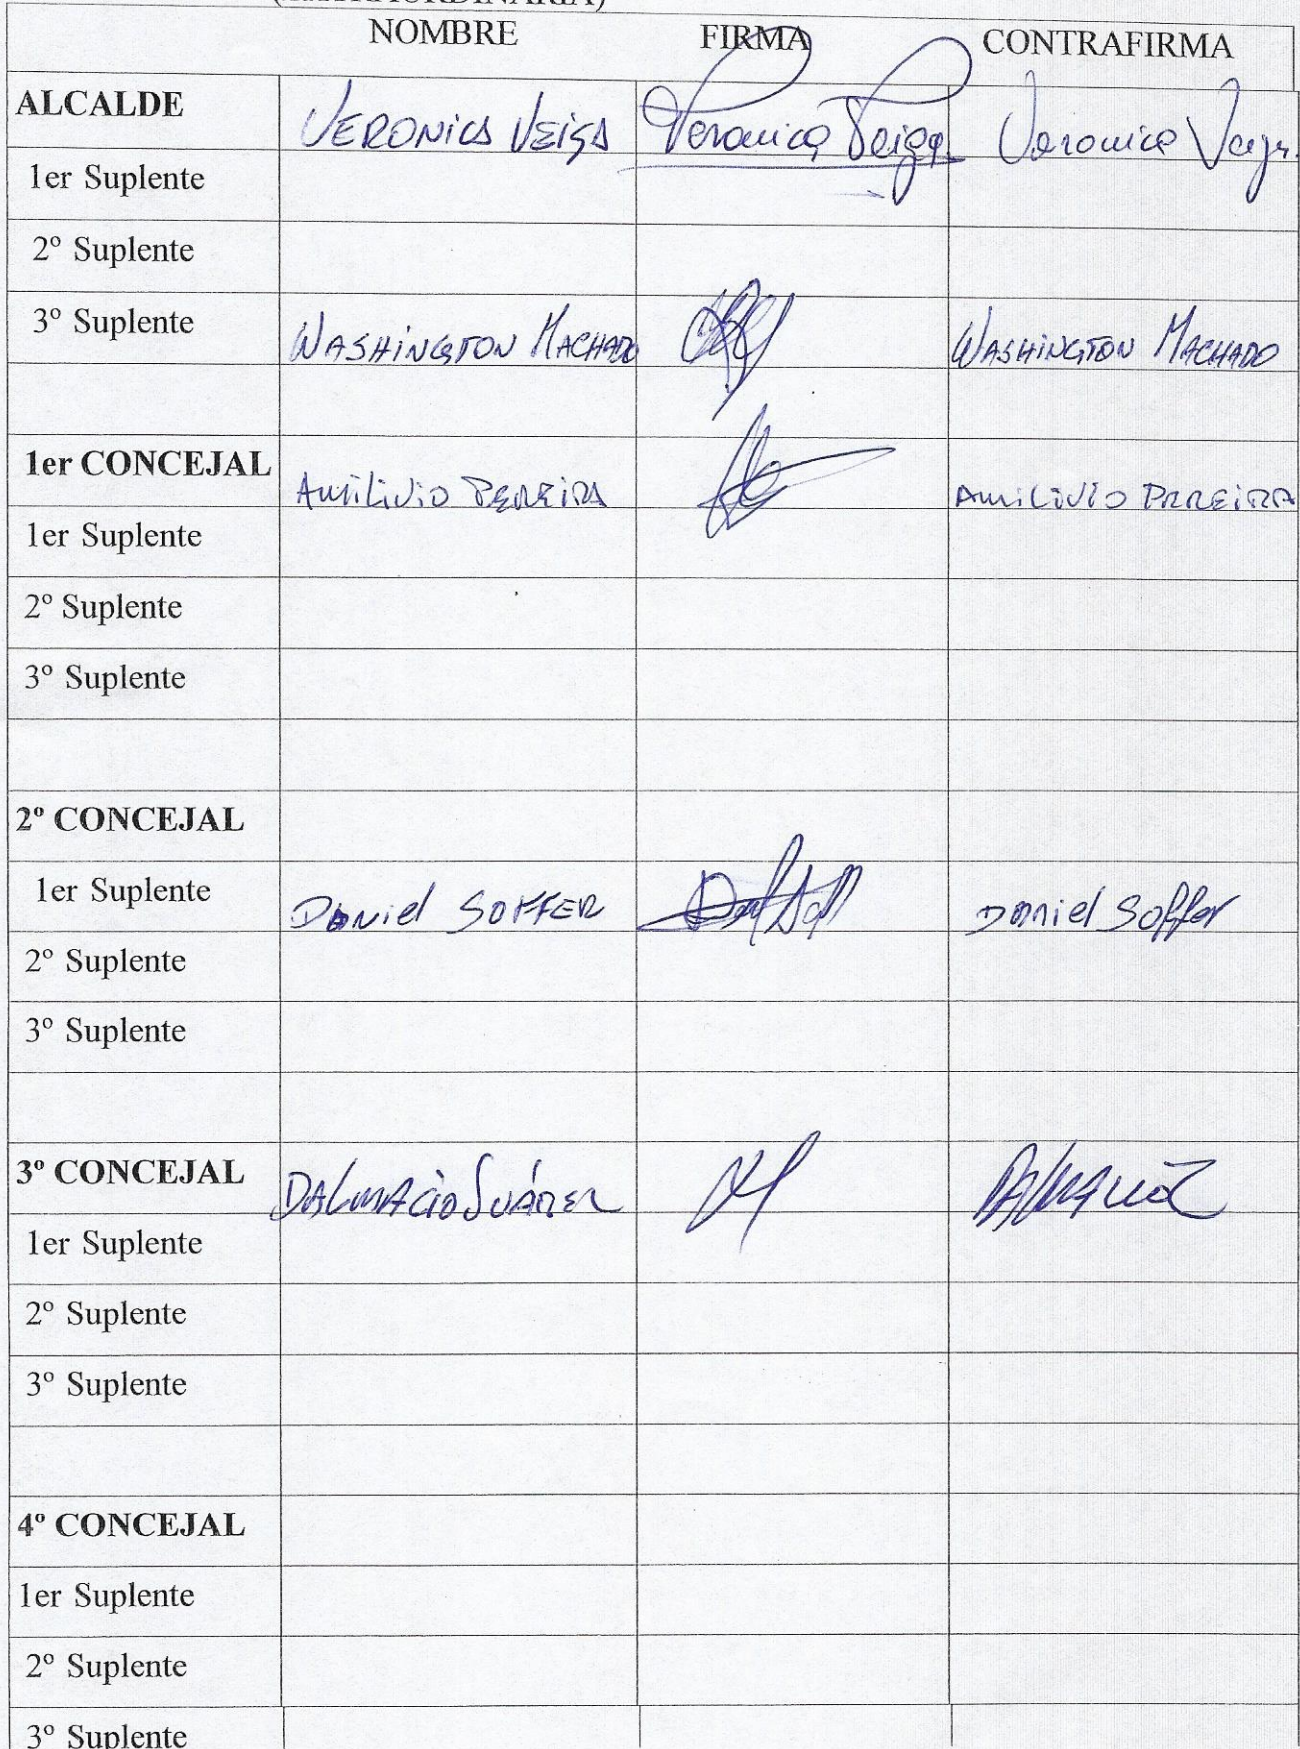 NOMBRE FIRMA CONTRAFIRMA
ALCALDE VERONICA VEIGA Veronica Veiga Veronica Veiga
1er Suplente
2º Suplente
3º Suplente WASHINGTON MACHADO WASHINGTON MACHADO
1er CONCEJAL AMILIVIO PEREIRA AMILIVIO PEREIRA
1er Suplente
2º Suplente
3º Suplente
2º CONCEJAL
1er Suplente DANiel SOFFER DANiel Soffer
2º Suplente
3º Suplente
3º CONCEJAL DALMACiO SUÁREZ
1er Suplente
2º Suplente
3º Suplente
4º CONCEJAL
1er Suplente
2º Suplente
3º Suplente